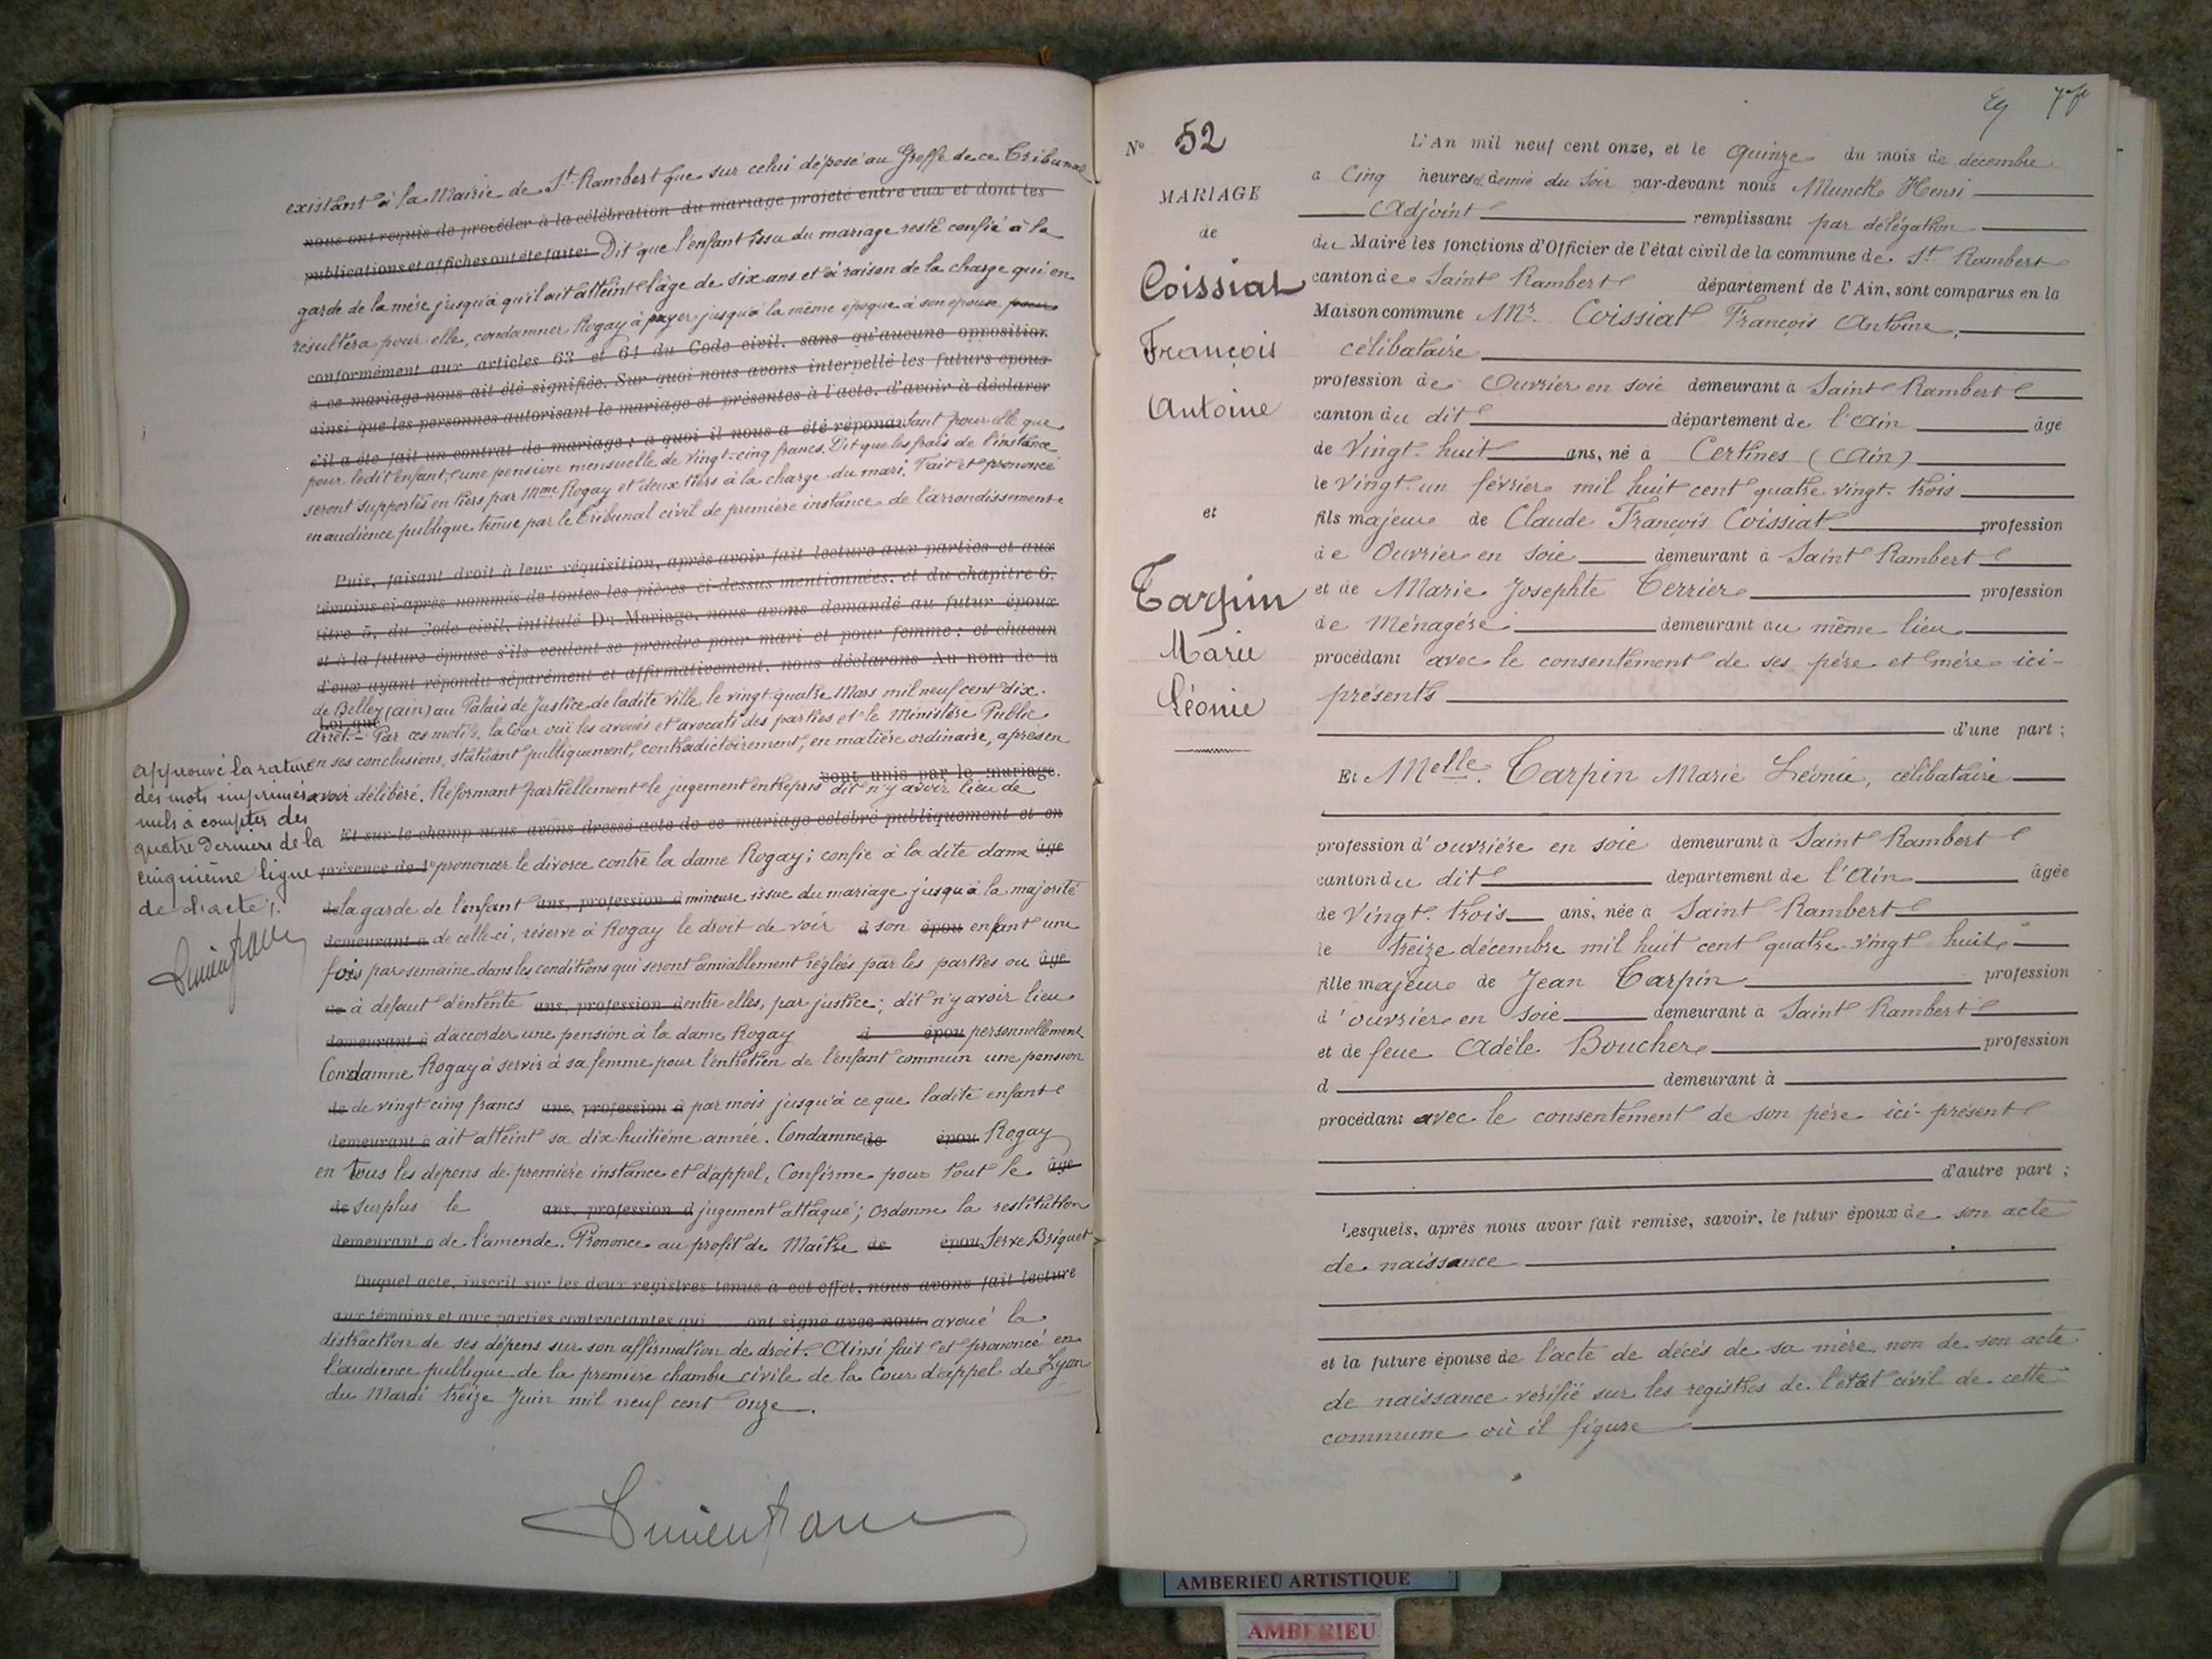 existant à la Mairie de St Rambert que sur celui déposé au Greffe de ce Tribunal
nous ont requis de procéder à la célébration du mariage projeté entre eux et dont les
publications et affiches ont été faites Dit que l'enfant issu du mariage reste confié à la
garde de la mère jusqu'à qu'il ait atteint l'âge de six ans et à raison de la charge qui en
résultera pour elle, condamner Rogay à payer jusqu'à la même époque à son épouse pour
conformément aux articles 63 et 64 du Code civil, sans qu'aucune opposition
à ce mariage nous ait été signifiée. Sur quoi nous avons interpellé les futurs époux
ainsi que les personnes autorisant le mariage et présentes à l'acte, d'avoir à déclarer
s'il a été fait un contrat de mariage : à quoi il nous a été répondu tant pour elle que
pour ledit enfant, une pension mensuelle de vingt-cinq francs. Dit que les frais de l'instance
seront supportés en tiers par Mme Rogay et deux tiers à la charge du mari. Fait et prononcé
en audience publique tenue par le Tribunal civil de première instance de l'arrondissement
Puis, faisant droit à leur réquisition, après avoir fait lecture aux parties et aux
témoins ci-après nommés de toutes les pièces ci-dessus mentionnées, et du chapitre 6,
titre 5, du Code civil, intitulé Du Mariage, nous avons demandé au futur époux
et à la future épouse s'ils veulent se prendre pour mari et pour femme : et chacun
d'eux ayant répondu séparément et affirmativement, nous déclarons Au nom de la
de Belley (ain) au Palais de Justice de ladite ville, le vingt-quatre Mars mil neuf cent dix.
Loi, que
Arrêt. - Par ces motifs, la Cour ouï les avoués et avocats des parties et le Ministère Public
en ses conclusions, statuant publiquement, contradictoirement, en matière ordinaire, après en
sont unis par le mariage.
avoir délibéré. Réformant partiellement le jugement entrepris dit n'y avoir lieu de
Et sur-le-champ nous avons dressé acte de ce mariage célébré publiquement et en
présence de 1º prononcer le divorce contre la dame Rogay ; confie à la dite dame âgé
de la garde de l'enfant ans, profession d mineure issue du mariage jusqu'à la majorité
demeurant à de celle-ci, réserve à Rogay le droit de voir d son épou enfant une
fois par semaine dans les conditions qui seront amiablement réglées par les parties ou âgé
de à défaut d'entente ans, profession d entre elles, par justice ; dit n'y avoir lieu
demeurant à d'accorder une pension à la dame Rogay d épou personnellement
Condamne Rogay à servir à sa femme pour l'entretien de l'enfant commun une pension
de de vingt cinq francs ans, profession d par mois jusqu'à ce que ladite enfant
demeurant à ait atteint sa dix huitième année. Condamne de épou Rogay
en tous les dépens de première instance et d'appel, Confirme pour tout le âgé
de surplus le ans, profession d jugement attaqué ; ordonne la restitution
demeurant à de l'amende. Prononce au profit de Maître de épou Serve Briquet
Duquel acte, inscrit sur les deux registres tenus à cet effet, nous avons fait lecture
aux témoins et aux parties contractantes qui ont signé avec nous avoué la
distraction de ses dépens sur son affirmation de droit. Ainsi fait et prononcé en
l'audience publique de la première chambre civile de la Cour d'appel de Lyon
du Mardi treize Juin mil neuf cent onze.
approuvé la rature
des mots imprimés
nuls à compter des
quatre derniers de la
cinquième ligne
de l'acte.
Nº 52
MARIAGE
de
Coissiat
François
Antoine
et
Tarpin
Marie
Léonie
L'An mil neuf cent onze, et le quinze du mois de décembre
à Cinq heures & demie du soir par-devant nous Munck Henri
Adjoint remplissant par délégation
du Maire les fonctions d'Officier de l'état civil de la commune de St Rambert
canton de Saint Rambert département de l'Ain, sont comparus en la
Maison commune Mr. Coissiat François Antoine,
célibataire
profession de Ouvrier en soie demeurant à Saint Rambert
canton du dit département de l'Ain âgé
de Vingt-huit ans, né à Certines (Ain)
le vingt-un février mil huit cent quatre vingt-trois
fils majeur de Claude François Coissiat profession
de Ouvrier en soie demeurant à Saint Rambert
et de Marie Josephte Terrier profession
de Ménagère demeurant au même lieu
procédant avec le consentement de ses père et mère ici-
présents
d'une part ;
Et Melle. Tarpin Marie Léonie, célibataire
profession d'ouvrière en soie demeurant à Saint Rambert
canton du dit département de l'Ain âgée
de Vingt-trois ans, née à Saint Rambert
le treize décembre mil huit cent quatre-vingt huit
fille majeure de Jean Tarpin profession
d'ouvrier en soie demeurant à Saint Rambert
et de feue Adèle Boucher profession
d demeurant à
procédant avec le consentement de son père ici-présent
d'autre part ;
Lesquels, après nous avoir fait remise, savoir, le futur époux de son acte
de naissance
et la future épouse de l'acte de décès de sa mère, non de son acte
de naissance vérifié sur les registres de l'état civil de cette
commune où il figure
AMBERIEU ARTISTIQUE
AMBERIEU